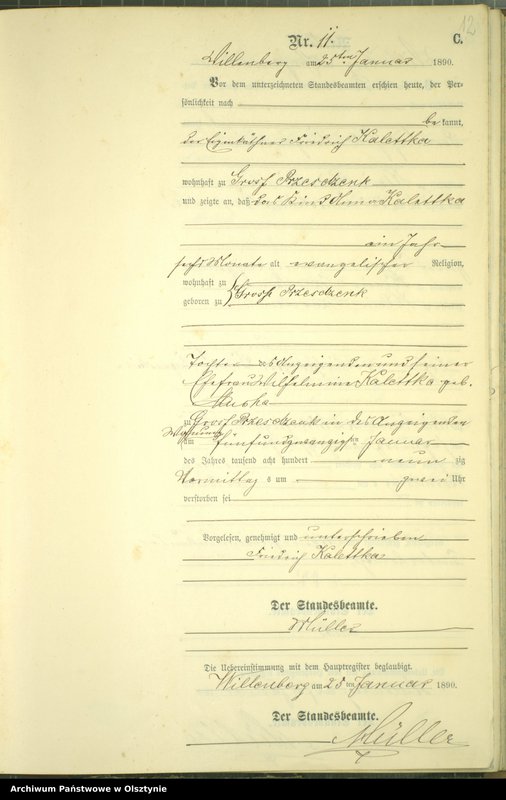 12
Nr. 11. C.
Willenberg am 25ten Januar 1890.
Vor dem unterzeichneten Standesbeamten erschien heute, der Per-
sönlichkeit nach
be kannt,
der Eigenkäthner Friedrich Kalettka
wohnhaft zu Gross Przesdzenk
und zeigte an, daß das Kind Anna Kalettka
ein Jahr
sechs Monate alt evangelischer Religion,
wohnhaft zu
geboren zu Gross Przesdzenk
Tochter des Anzeigenden und seiner
Ehefrau Wilhelmine Kalettka geb.
zu Gross Przesdzenk in des Anzeigenden
Wohnung
am fünfundzwanzigsten Januar
des Jahres tausend acht hundert neun zig
Vormittag s um zwei Uhr
verstorben sei
Vorgelesen, genehmigt und unterschrieben
Friedrich Kalettka
Der Standesbeamte.
Müller
Die Uebereinstimmung mit dem Hauptregister beglaubigt.
Willenberg am 25ten Januar 1890.
Der Standesbeamte.
Müller
Archiwum Państwowe w Olsztynie